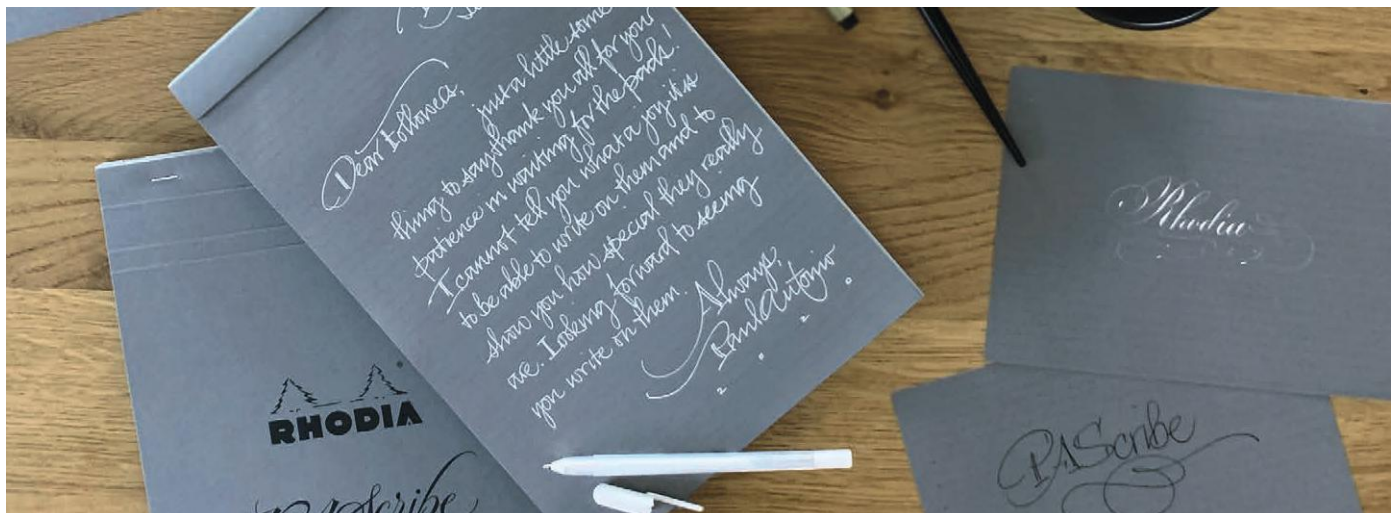 Dear Followers,
just a little some
thing to say thank you all for your
patience in waiting for the pads!
I cannot tell you what a joy it is
to be able to write on them and to
show you how special they really
are. Looking forward to seeing
you write on them.
Always,
Paul Antonio
RHODIA
PAScribe
Rhodia
PAScribe